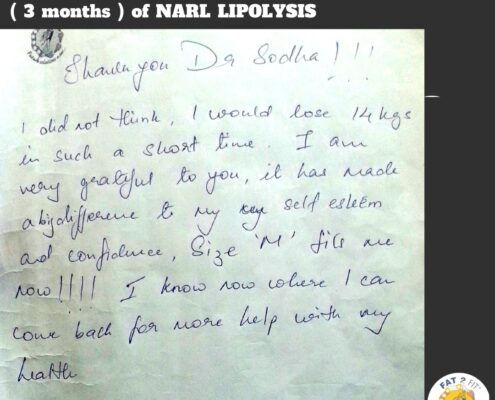 ( 3 months ) of NARL LIPOLYSIS
Thank you Dr Sodha!!!
I did not think, I would lose 14kgs
in such a short time. I am
very grateful to you, it has made
a big difference to my self esteem
and confidence, Size 'M' fits me
now!!!! I know now where I can
come back for more help with my
health
FAT 2 FIT